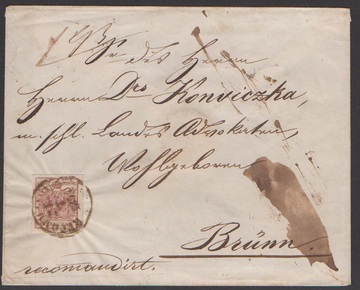 des Herrn
Herrn Drs Konviczka,
m. schl. Landes Advokaten,
Wohlgeboren
Brünn.
recomandirt.